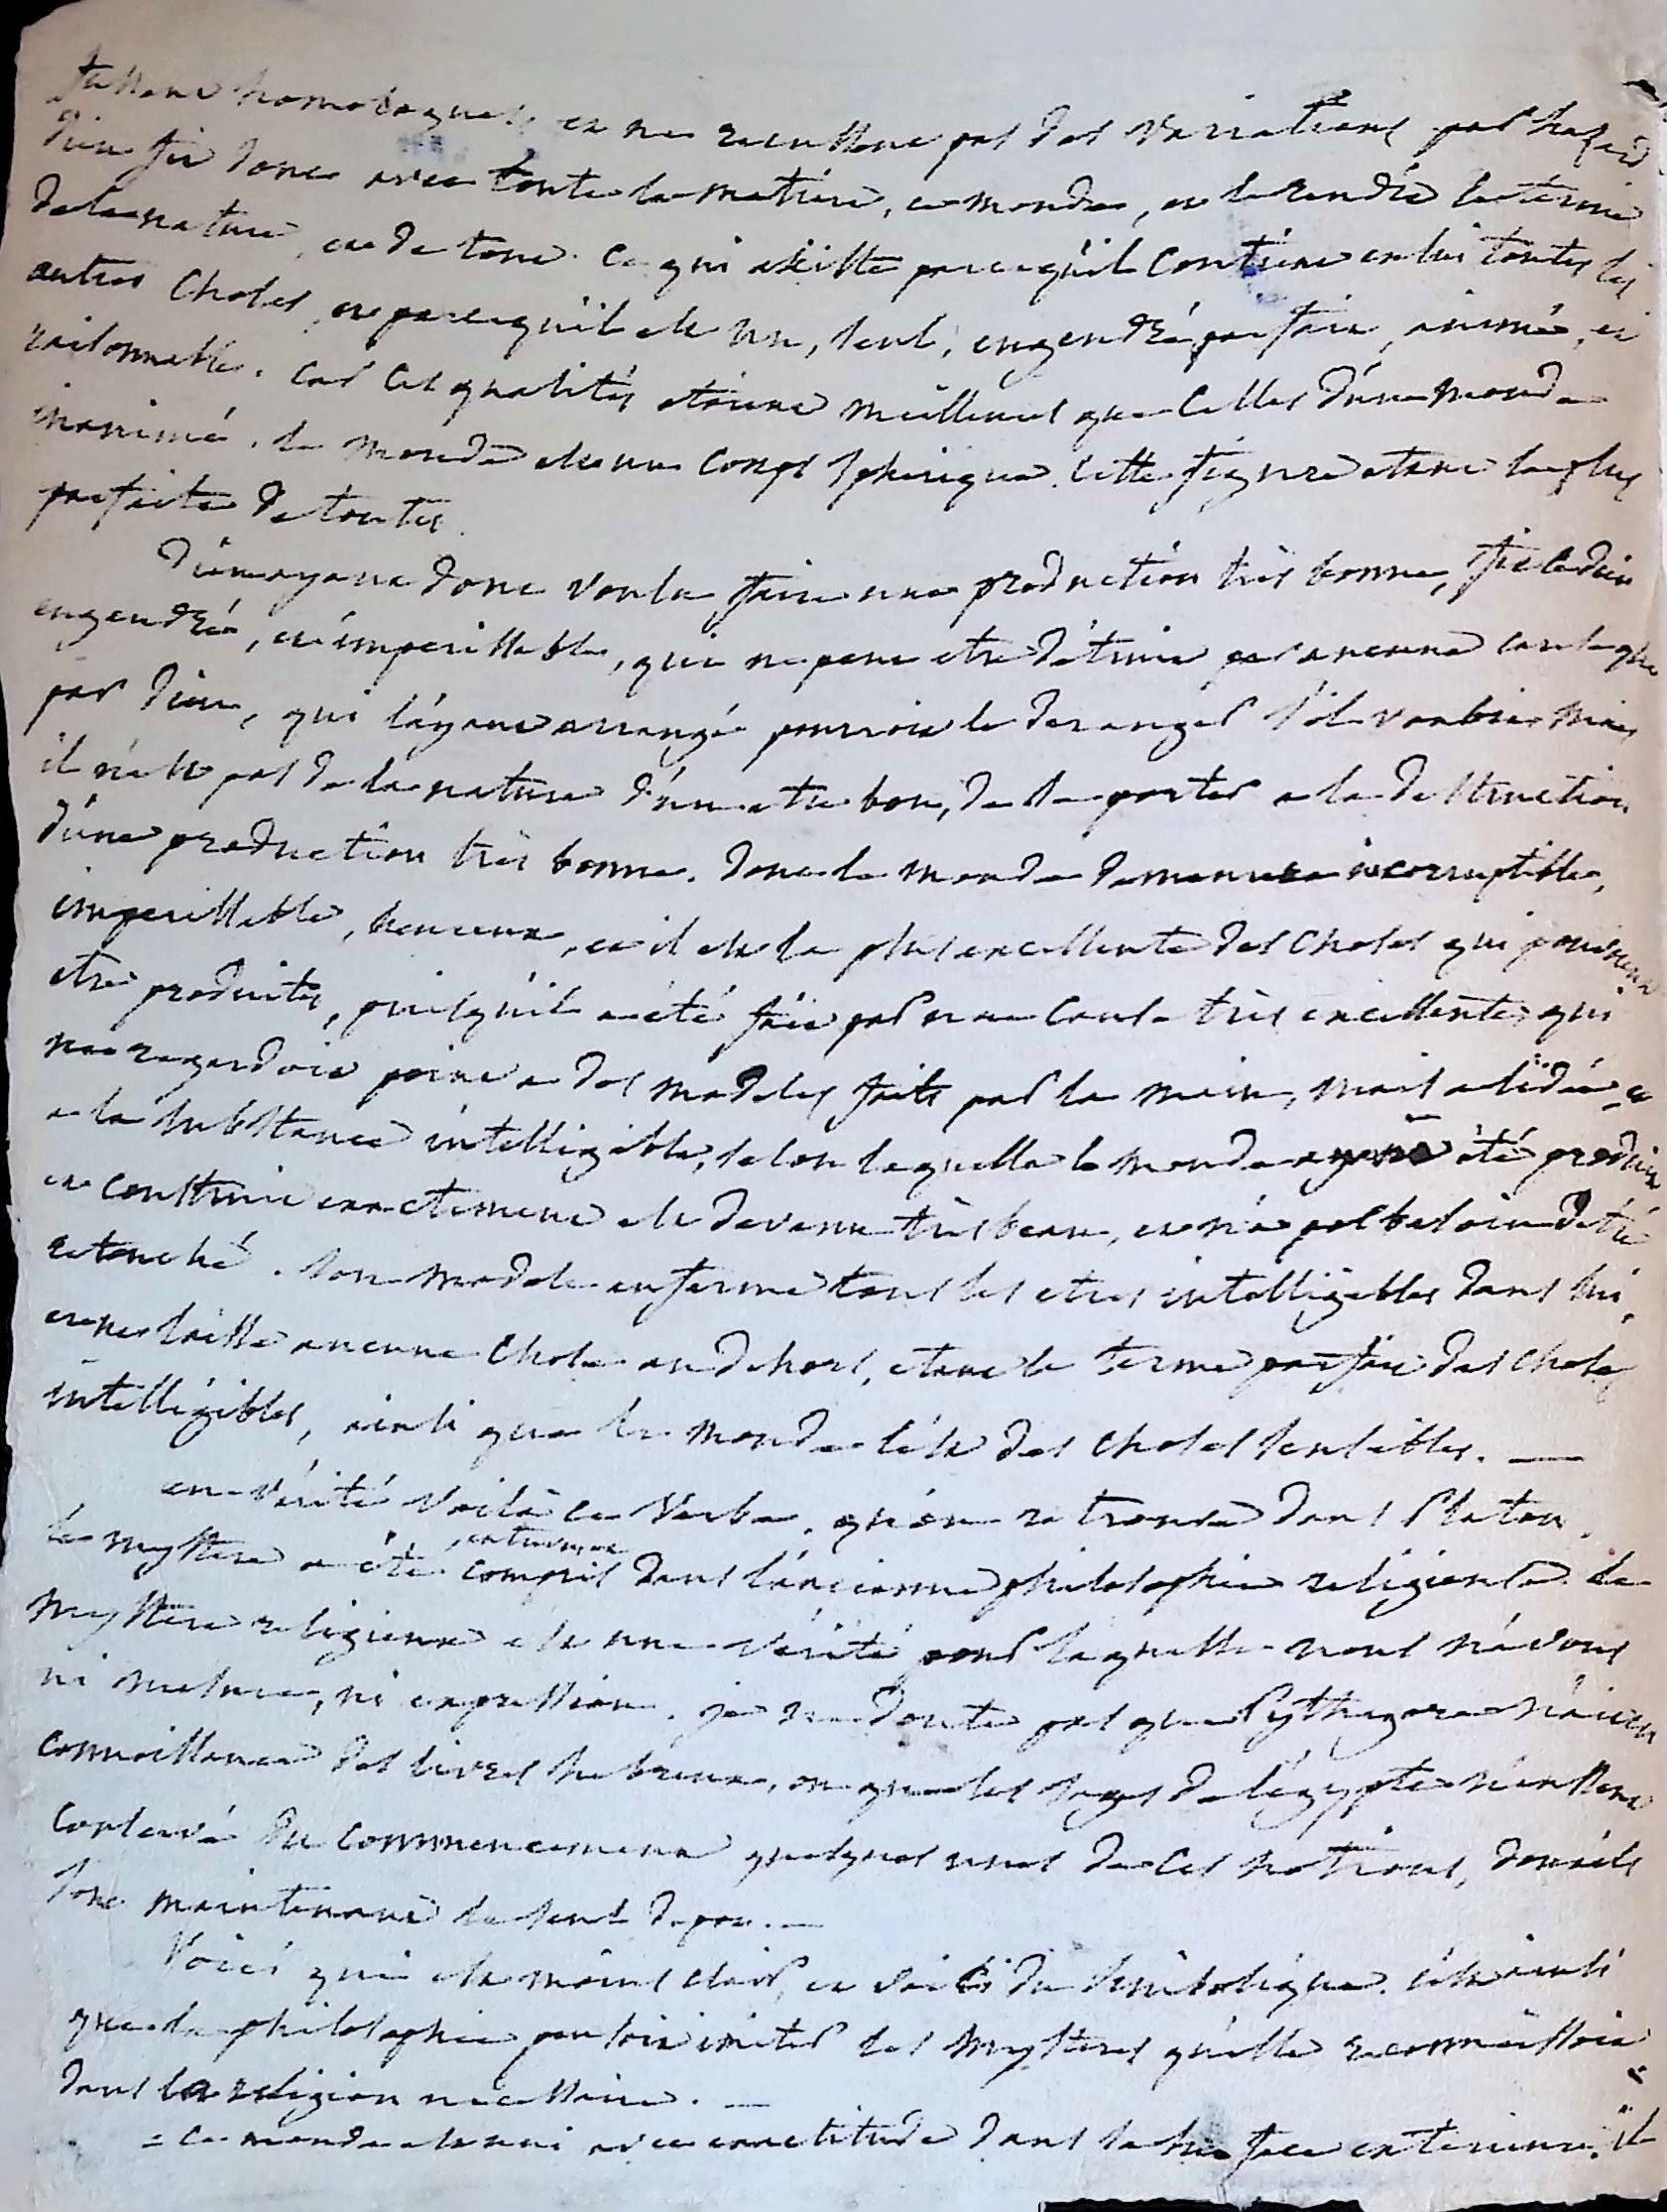 fussent homologues, et ne recussent pas des variations par hazard
Dieu fit donc avec toute la matiere, ce monde, et le rendit le terme
de la nature, et de tout ce qui existe parcequ'il contient en lui toutes les
autres choses, et parcequ'il est un, seul, engendré, parfait, animé, et
raisonnable. car ces qualités étoient meilleures que celles d'un monde
inanimé. le monde est un corps spherique. cette figure étant la plus
parfaite de toutes.
Dieu ayant donc voulu faire une production très bonne, fit ce dieu
engendré, et imperissable, qui ne peut etre détruit par aucune cause que
par Dieu, qui l'ayant arrangé pourroit le deranger s'il vouloit mais
il n'est pas de la nature d'un etre bon, de se porter a la destruction
d'une production très bonne. donc le monde demeure incorruptible,
imperissable, heureux, et il est la plus excellente des choses qui pouvoient
etre produites, puisqu'il a été fait par une cause très excellente, qui
ne regardoit point a des modeles faits par la main, mais a l'idée, et
a la substance intelligible, selon laquelle le monde ayant été produit
et construit exactement est devenu très beau, et n'a pas besoin d'etre
retouché. son modele enferme tous les etres intelligibles dans lui,
et ne laisse aucune chose au dehors, etant le terme parfait des choses
intelligibles, ainsi que le monde l'est des choses sensibles. —
en vérité voilà ce Verbe, qu'on retrouve dans Platon.
le mystere a été compris dans l'ancienne philosophie religieuse. le
mystere religieux est une vérité pour laquelle nous n'avons
ni mesure, ni expression. je ne doute pas que Pythagore n'ait eu
connoissance des livres hebreux, ou que les sages de l'égypte n'eussent
conservé du commencement quelques unes de ces notions, dont ils
sont maintenant le seul depot. —
Voici qui est moins clair, et voici du sistolique. c'est ainsi
que la philosophie pensoit imiter les mysteres qu'elle reconnoissoit
dans la religion necessaire. —
= ce monde est uni avec exactitude dans la surface exterieure. il